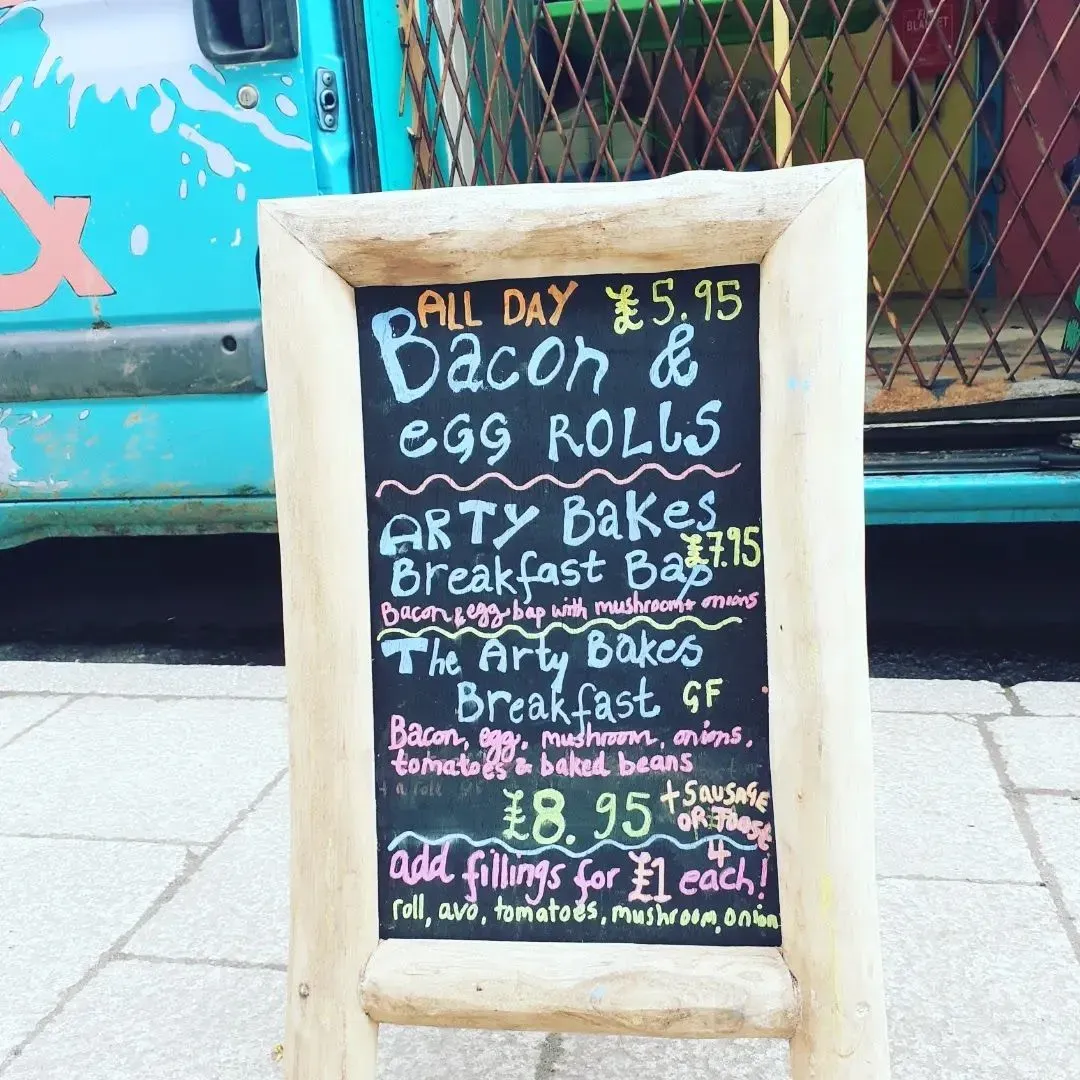 FIRE
BLANKET
&
ALL DAY £5.95
Bacon &
egg ROLLS
ARTY BaKes
£7.95
Breakfast Bap
Bacon & egg bap with mushroom + onions
The Arty Bakes
Breakfast GF
Bacon, egg, mushroom, onions,
tomatoes & baked beans
+ a roll
£8.95 + SAUSAGE
OR Toast
4
add fillings for £1 each!
roll, avo, tomatoes, mushroom, onion